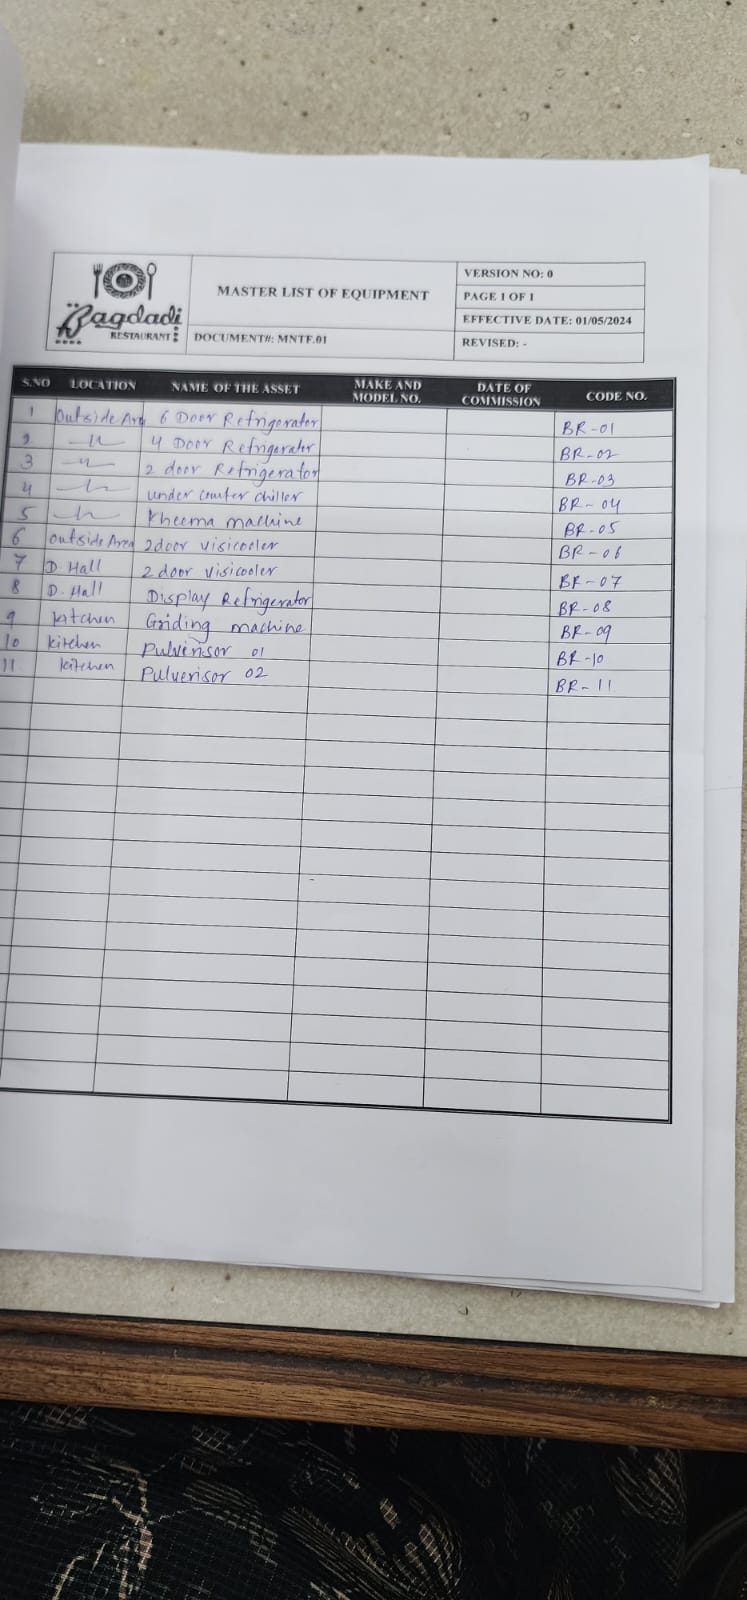 Bagdadi
RESTAURANT
MASTER LIST OF EQUIPMENT
DOCUMENT#: MNTF.01
VERSION NO: 0
PAGE 1 OF 1
EFFECTIVE DATE: 01/05/2024
REVISED: -
S.NO LOCATION NAME OF THE ASSET MAKE AND MODEL NO. DATE OF COMMISSION CODE NO.
1 Outside Are 6 Door Refrigerator BR-01
2 —〃— 4 Door Refrigerator BR-02
3 —〃— 2 door Refrigerator BR-03
4 —〃— under counter chiller BR-04
5 —〃— Kheema machine BR-05
6 Outside Area 2door visicooler BR-06
7 D. Hall 2 door visicooler BR-07
8 D. Hall Display Refrigerator BR-08
9 kitchen Griding machine BR-09
10 kitchen Pulverisor 01 BR-10
11 kitchen Pulverisor 02 BR-11